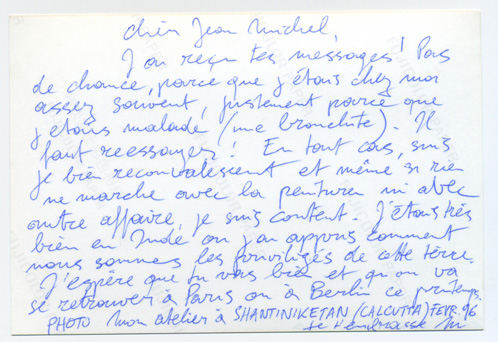 cher Jean Michel,
J'ai reçu tes messages! Pas
de chance, parce que j'étais chez moi
assez souvent, justement parce que
j'étais malade (une bronchite). Il
faut reessayer! En tout cas, suis
je bien reconvalescent et même si rien
ne marche avec la peinture ni avec
autre affaire, je suis content. J'étais très
bien en Inde ou j'ai appris comment
nous sommes les priviligés de cette terre.
J'espère que tu vas bien et qu'on va
se retrouver à Paris ou à Berlin ce printemps.
PHOTO Mon atelier à SHANTINIKETAN (CALCUTTA) FEVR. 96
Je t'embrasse